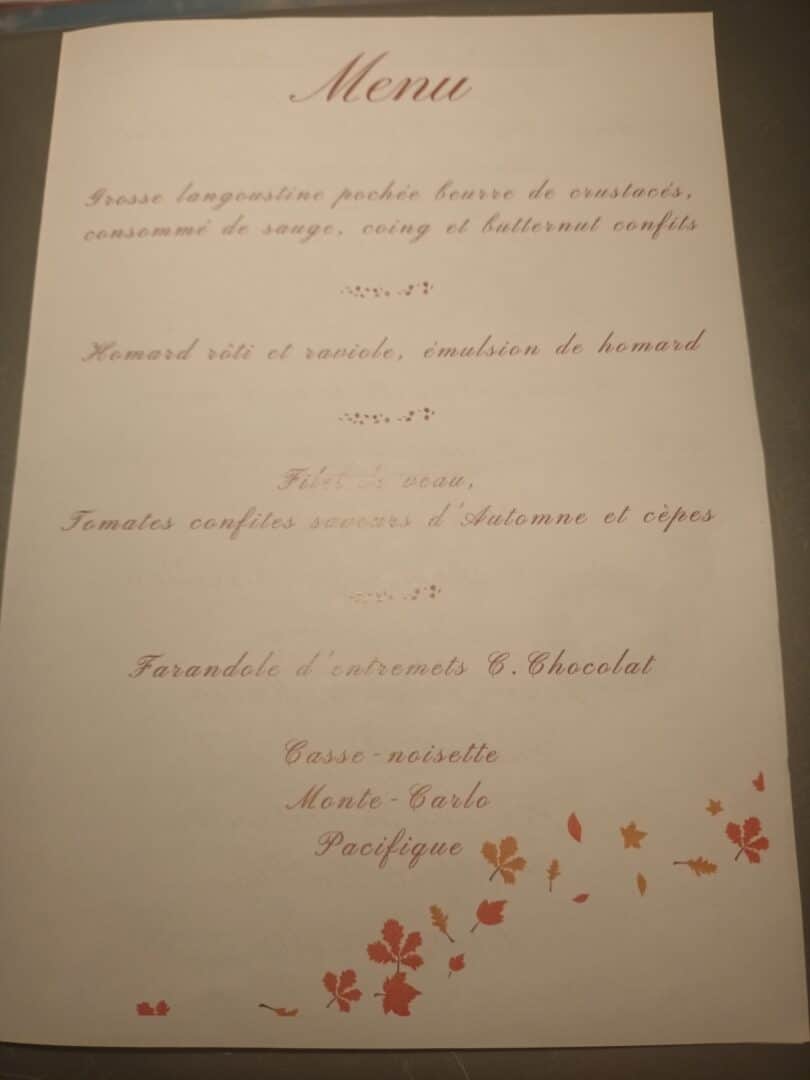 Menu
Grosse langoustine pochée beurre de crustacés,
consommé de sauge, coing et butternut confits
Homard rôti et raviole, émulsion de homard
Filet de veau,
Tomates confites saveurs d'Automne et cèpes
Farandole d'entremets C.Chocolat
Casse-noisette
Monte-Carlo
Pacifique